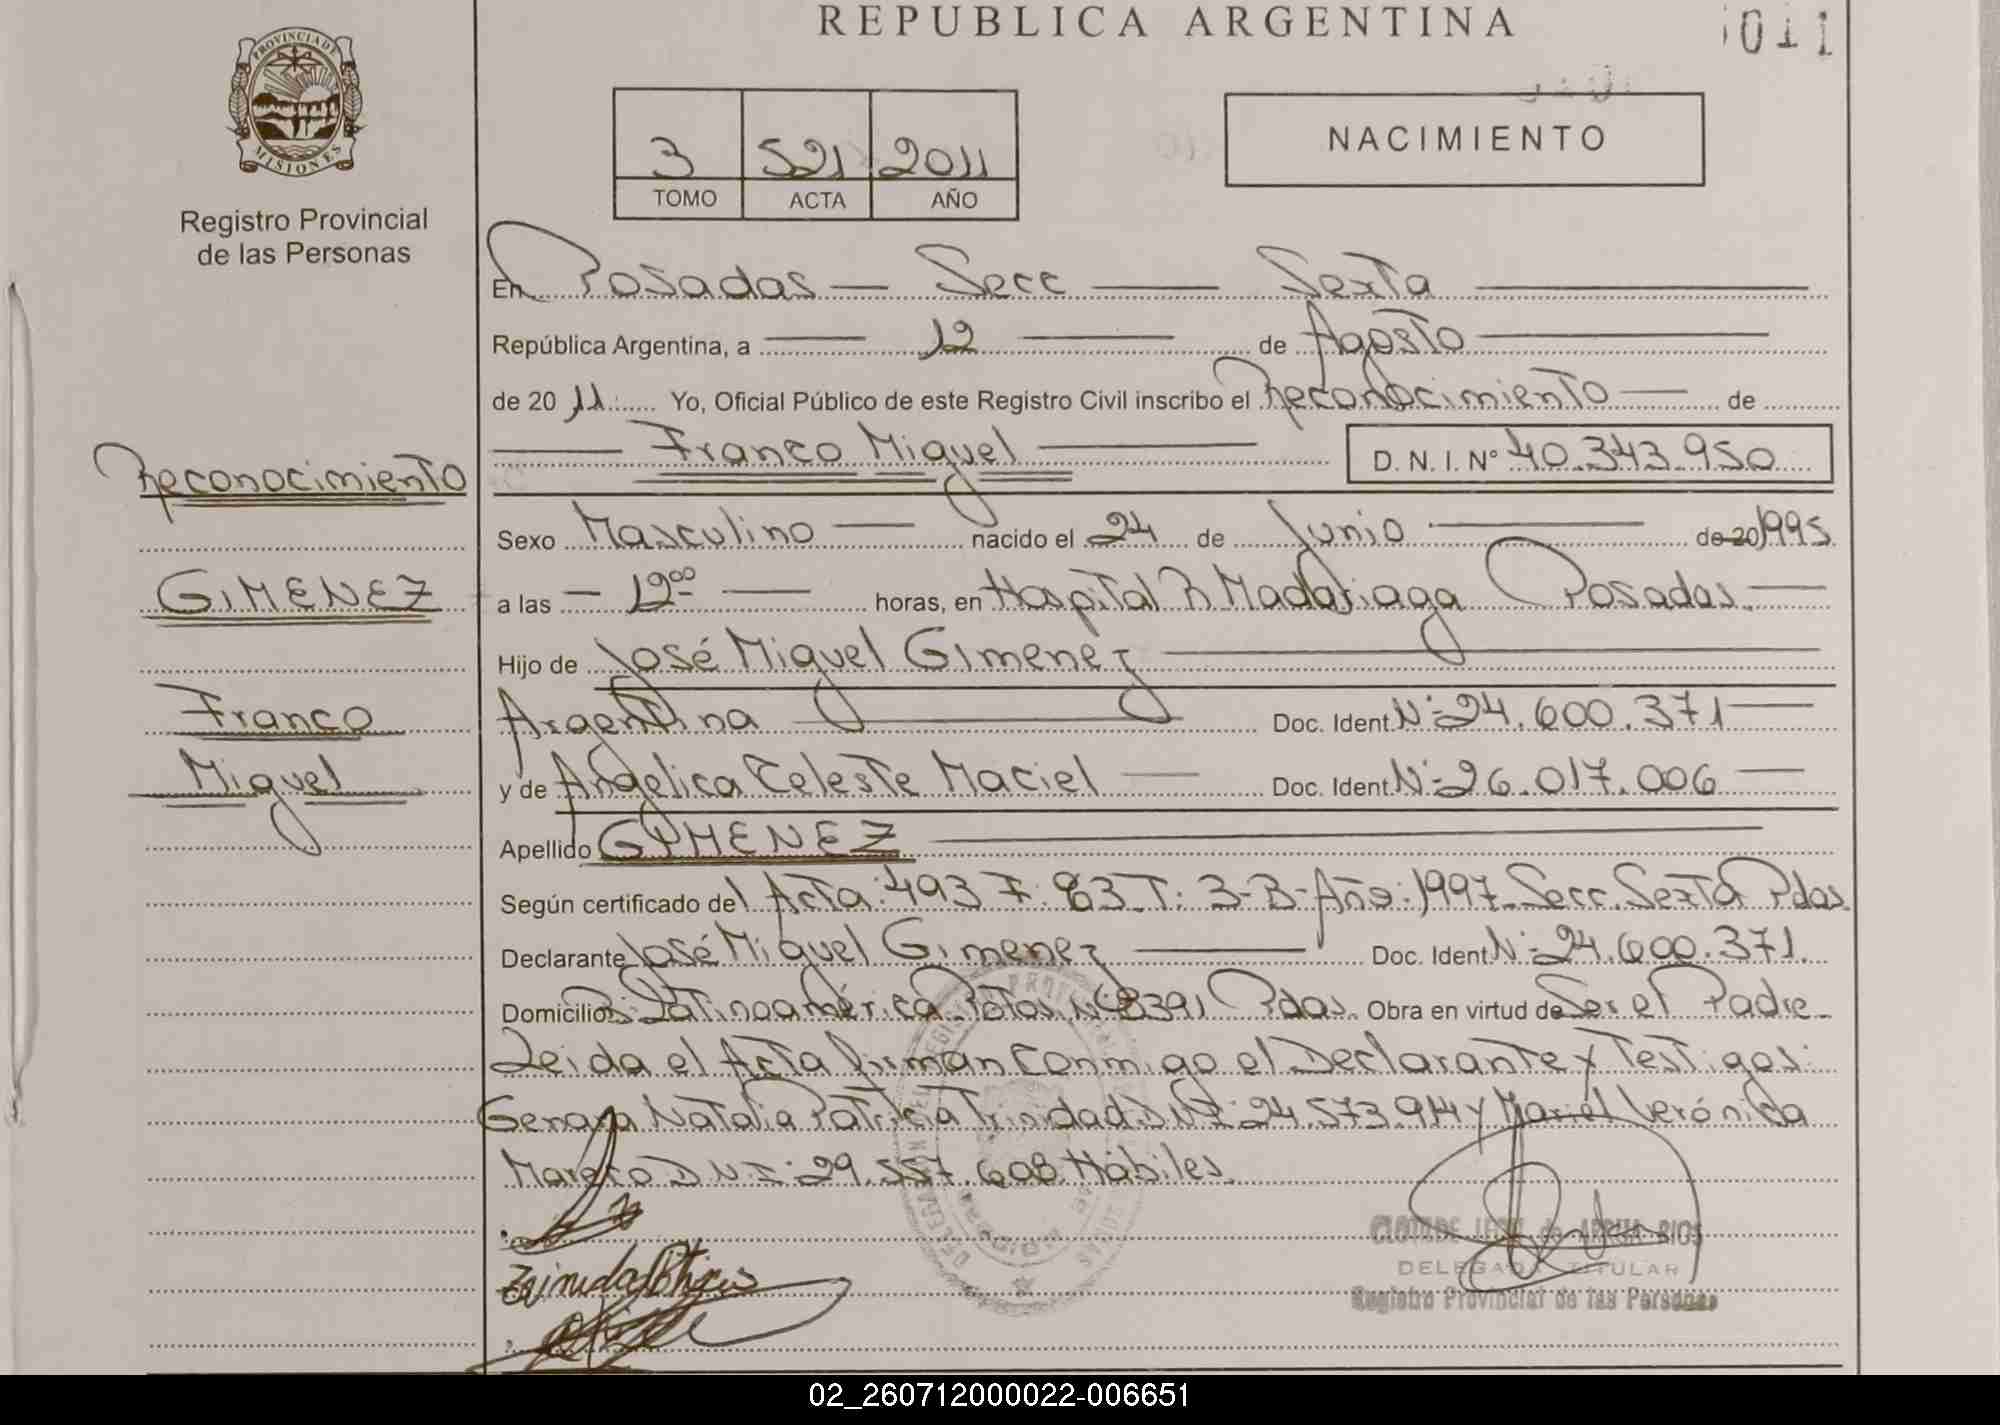 REPUBLICA ARGENTINA
1011
PROVINCIA DE MISIONES
Registro Provincial
de las Personas
3 521 2011
TOMO ACTA AÑO
NACIMIENTO
En Posadas — Secc — Sexta
República Argentina, a 12 de Agosto
de 2011 Yo, Oficial Público de este Registro Civil inscribo el Reconocimiento de
Franco Miguel D. N. I. Nº 40.343.950
Reconocimiento
Sexo Masculino nacido el 24 de Junio de 20 1995
GIMENEZ
a las 12⁰⁰ horas, en Hospital R Madariaga Posadas.
Hijo de José Miguel Gimenez
Franco
Argentina Doc. Ident. Nº 24.600.371
Miguel
y de Angelica Celeste Maciel Doc. Ident. Nº 26.017.006
Apellido GIMENEZ
Según certificado del Acta: 493 F: 83 T: 3-B- Año: 1997 Secc. Sexta Pdas
Declarante José Miguel Gimenez Doc. Ident. Nº 24.600.371.
Domicilio Bº Latinoamérica Nº 8391 Pdas. Obra en virtud de Ser el Padre
Leida el Acta firman Conmigo el Declarante y Testigos:
Genara Natalia Patricia Trinidad D.N.I: 24.573.914 y Mariel Verónica
Mareco D.N.I: 29.557.608 Hábiles.
DELEGADA TITULAR
Registro Provincial de las Personas
02_260712000022-006651